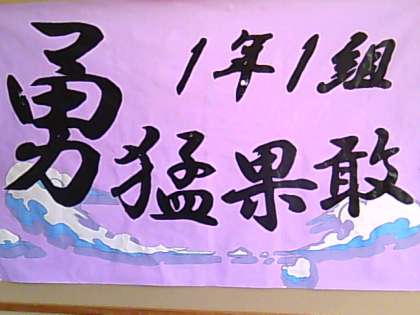 1年1組
勇猛果敢